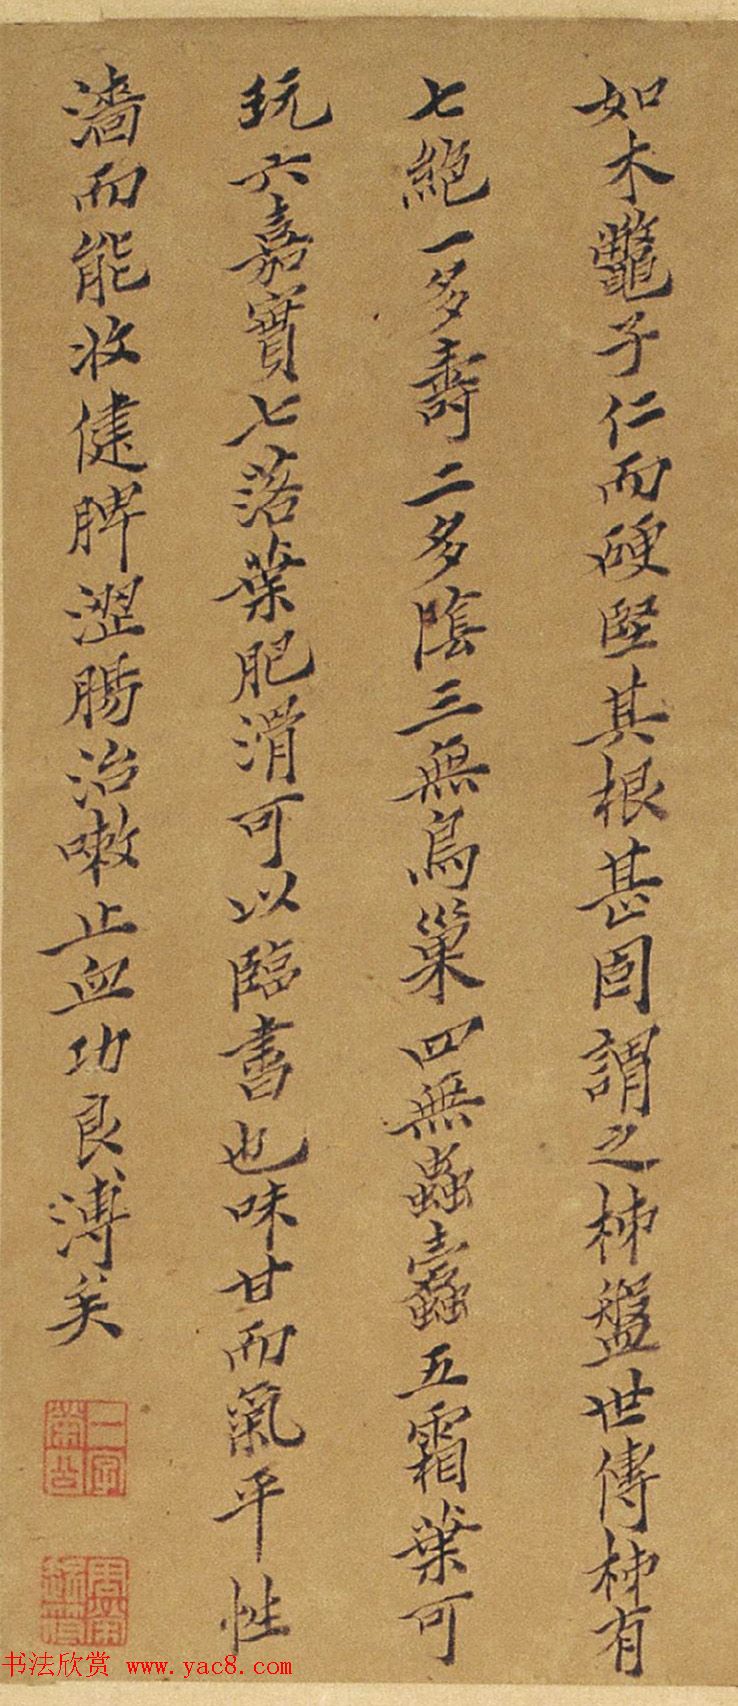 如木鼈子仁而硬堅其根甚固謂之柹盤世傳柹有
七絕一多壽二多陰三無鳥巢四無蟲蠹五霜葉可
玩六嘉實七落葉肥滑可以臨書也味甘而氣平性
濇而能收健脾澀腸治嗽止血功良溥矣
书法欣赏 www.yac8.com